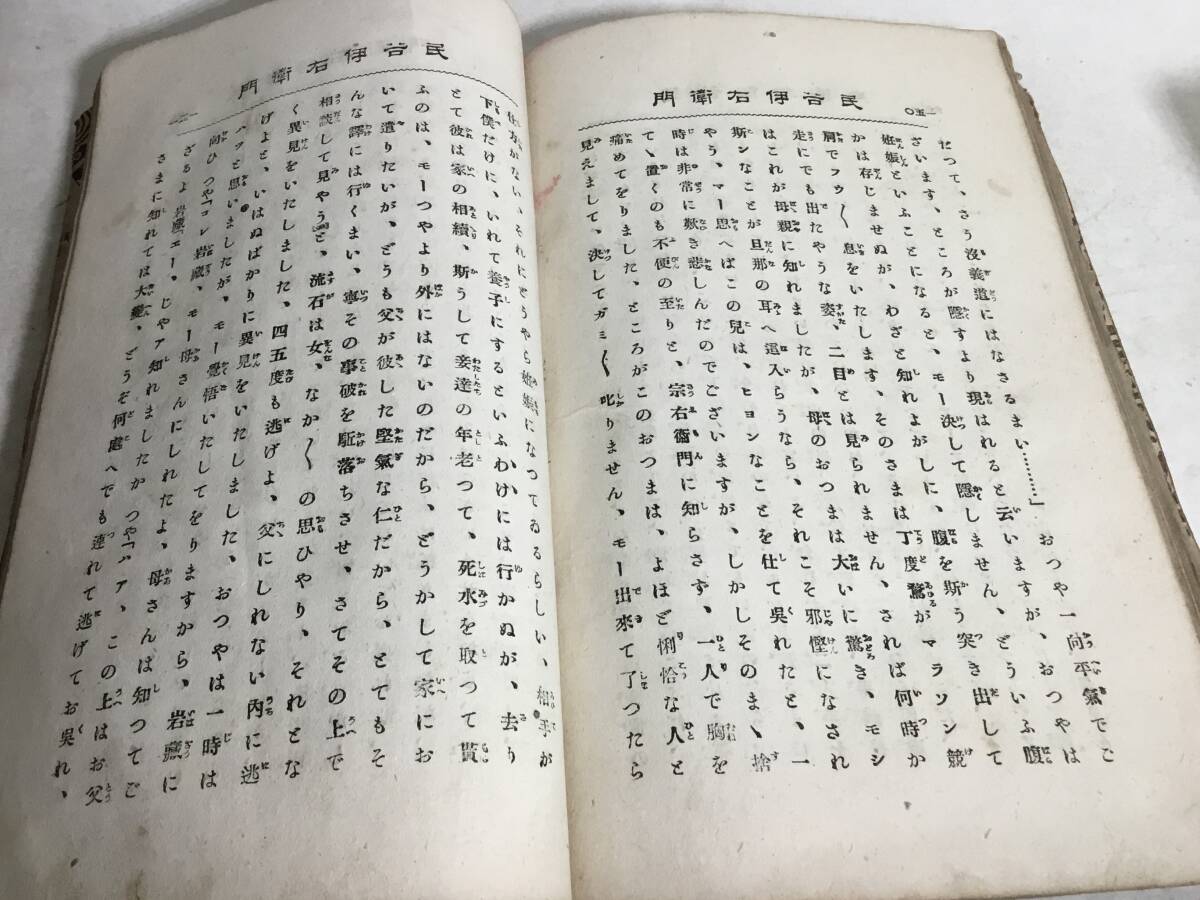 民谷伊右衛門
一五〇
だつて、さう沒義道にはなさるまい………」おつや一向平氣でご
ざいます、ところが隱すより現はれると云いますが、おつやは
姙娠といふことになると、モー決して隱しません、どういふ腹
かは存じませぬが、わざと知れよがしに、腹を斯う突き出して
肩でフウ〳〵息をいたします、そのさまは丁度驚がマラソン競
走にでも出たやうな姿、二目とは見られません、されば何時か
はこれが母親に知れましたが、母のおつまは大いに驚き、モシ
斯ンなことが旦那の耳へ這入らうなら、それこそ邪慳になされ
やう、マー思へばこの兒は、ヒョンなことを仕て呉れたと、一
時は非常に歎き悲しんだのでございますが、しかしそのまゝ捨
てゝ置くのも不便の至りと、宗右衛門に知らさず、一人で胸を
痛めてをりました、ところがこのおつまは、よほど悧恰な人と
見えまして、決してガミ〳〵叱りません、モー出來て了つたら
民谷伊右衛門
仕方がない、それにどうやら姙娠になつてゐるらしい、相手が
下僕だけに、いれて養子にするといふわけには行かぬが、去り
とて彼は家の相續、斯うして妾達の年老つて、死水を取つて貰
ふのは、モーつやより外にはないのだから、どうかして家にお
いて遣りたいが、どうも父が彼した堅氣な仁だから、とてもそ
んな譯には行くまい、寧その事破を駈落ちさせ、さてその上で
相談して見やうと、流石は女、なか〳〵の思ひやり、それとな
く異見をいたしました、四五度も逃げよ、父にしれない内に逃
げよと、いはぬばかりに異見をいたしました、おつやは一時は
ハツと思いましたが、モー覺悟いたしてをりますから、岩藏に
向ひ つや「コレ岩藏、モー母さんにしれたよ、母さんは知つてご
ざるよ 岩藏「エー、じやア知れましたか つや「ハア、この上はお父
さまに知れては大變、どうぞ何處へでも連れて逃げてお呉れ、